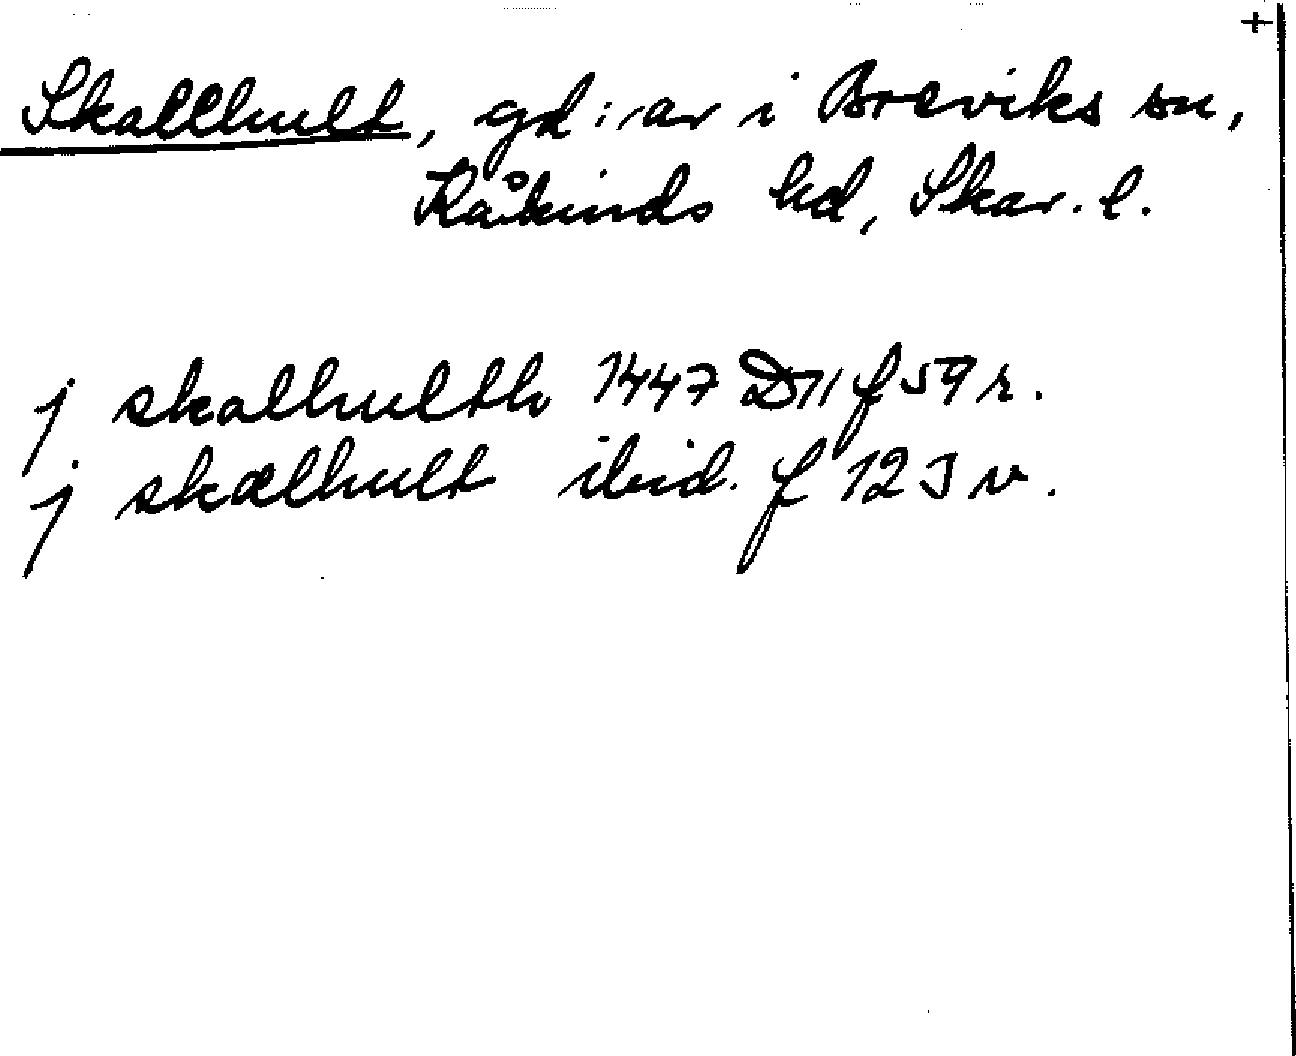 +
Skallhult, gd:ar i Breviks sn,
Kåkinds hd, Skar. l.
j skalhulth 1447 D11 f 59 r.
j skælhult ibid. f 123 v.